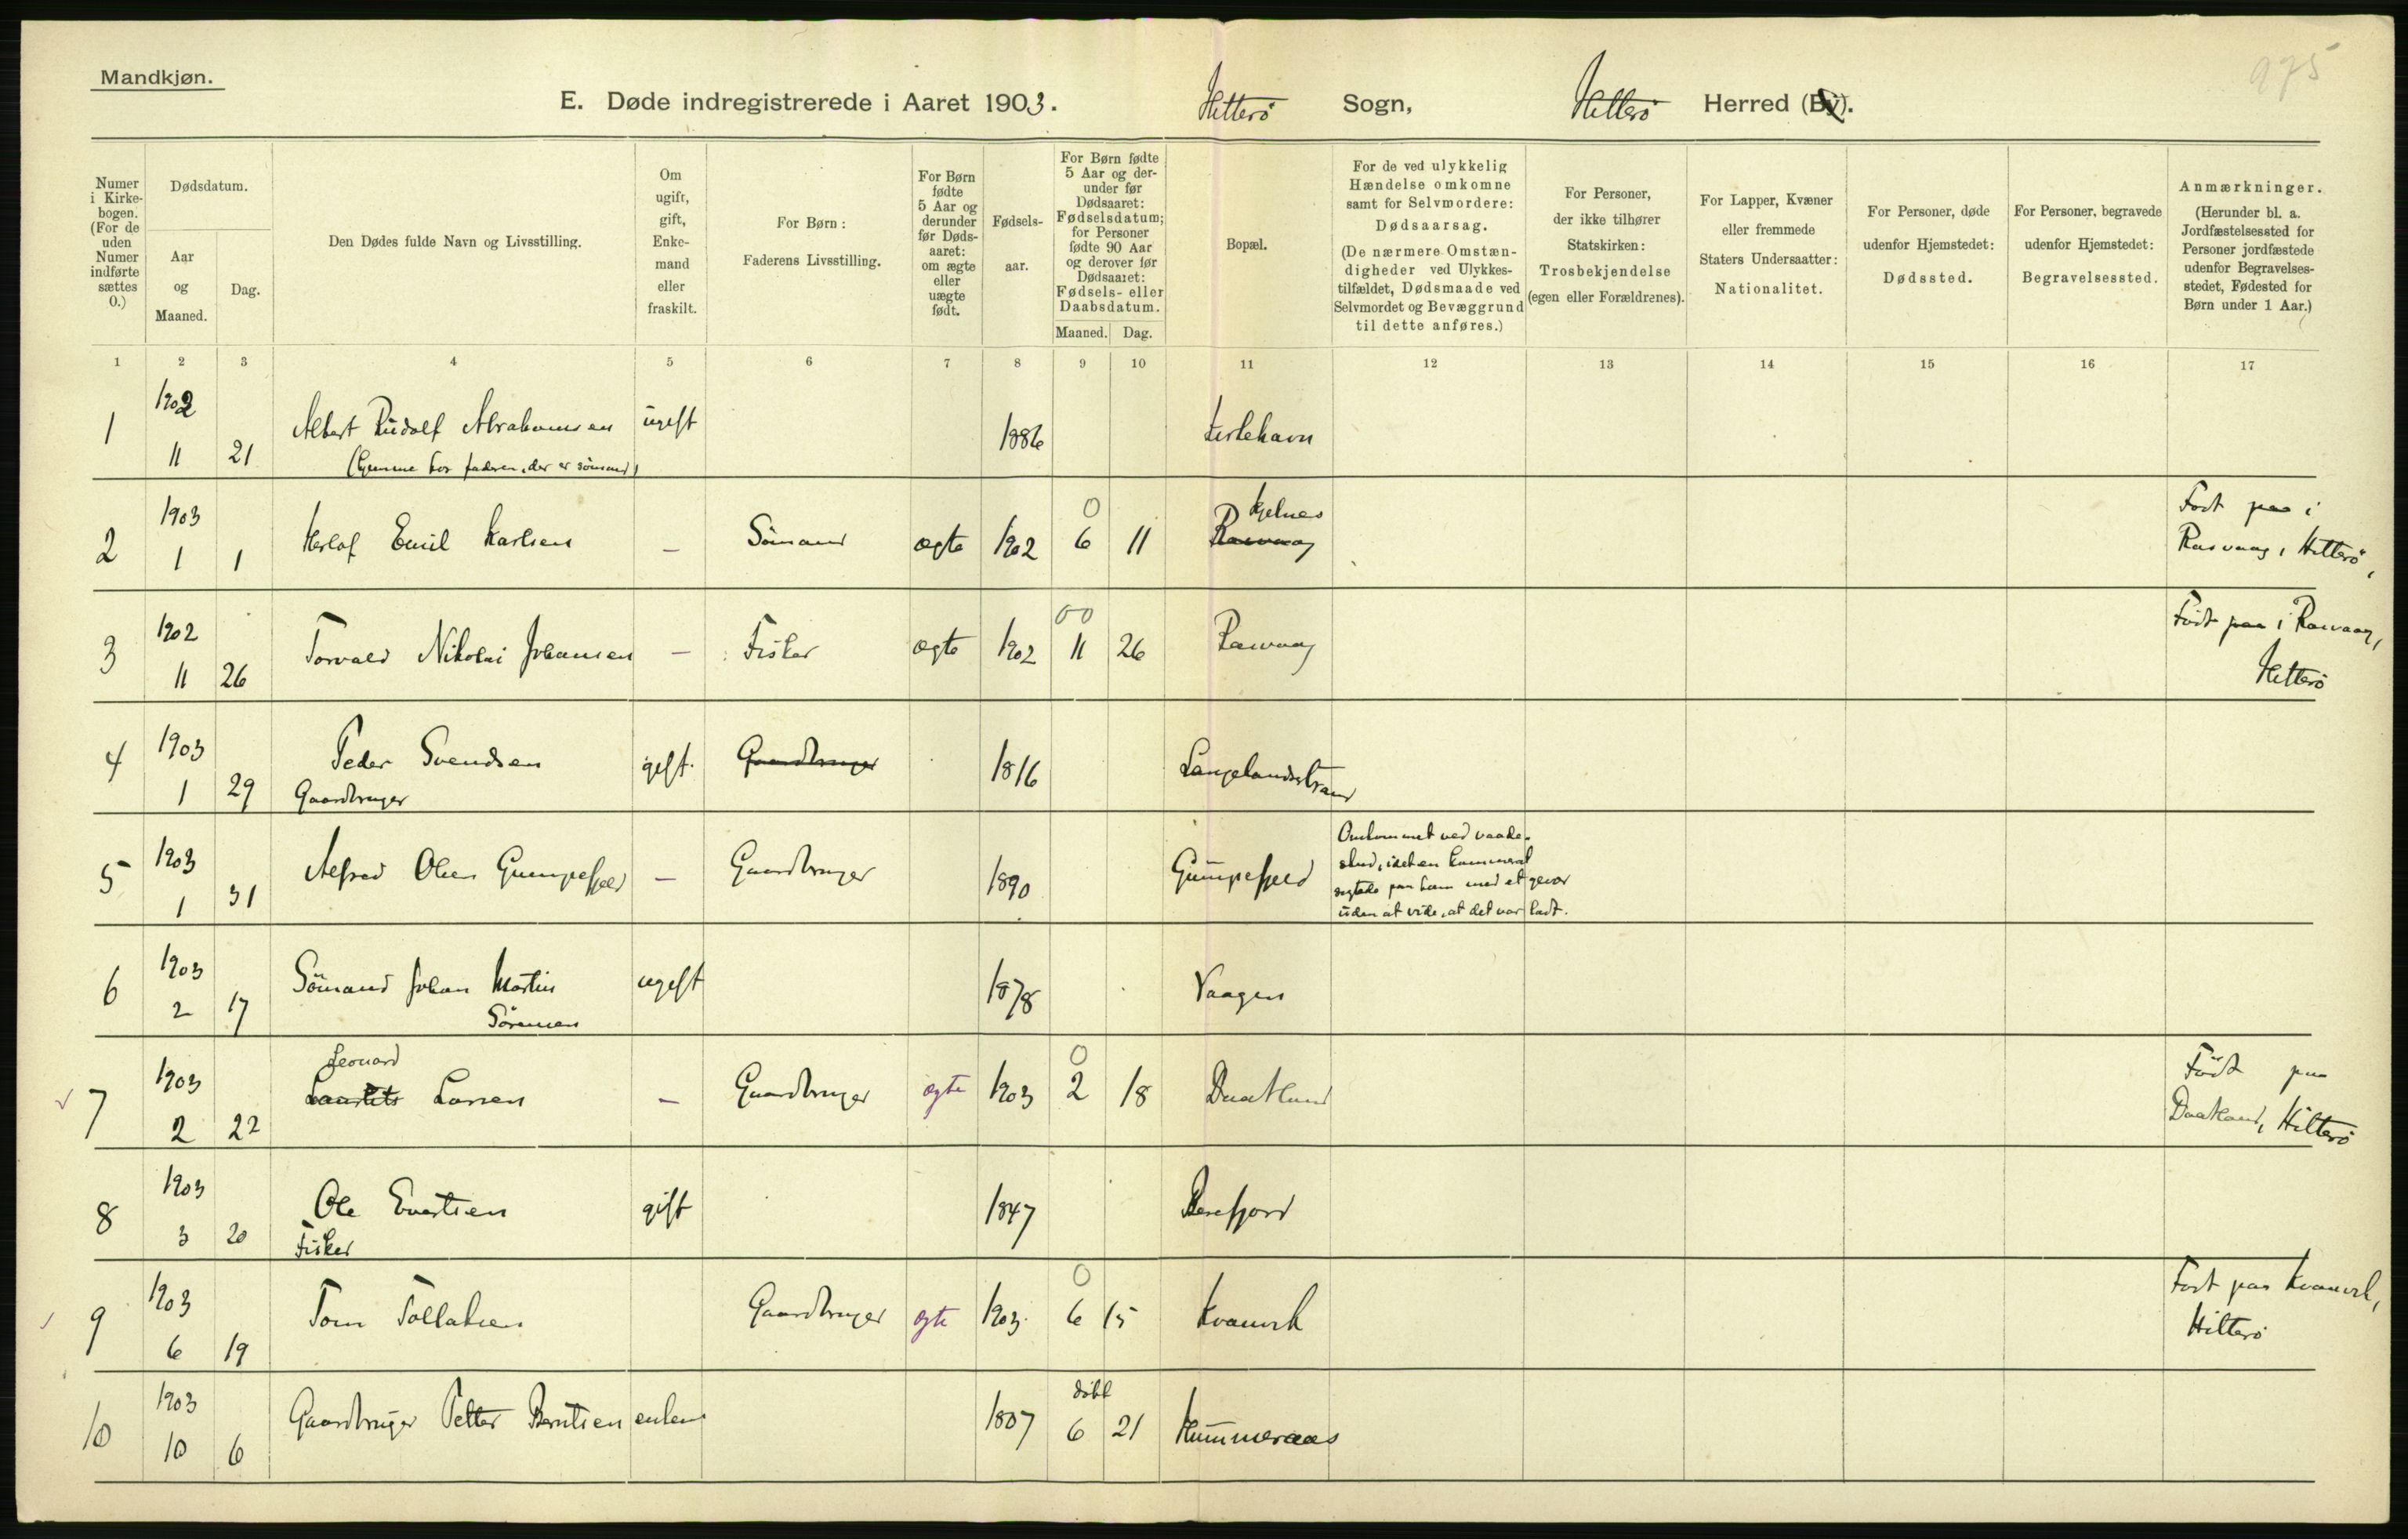 Mandkjøn.
975
E. Døde indregistrerede i Aaret 1903. Hitterö Sogn, Hitterö Herred (By).
Numer i Kirkebogen. (For de uden Numer indførte sættes 0.)
Dødsdatum.
Aar og Maaned.
Dag.
Den Dødes fulde Navn og Livsstilling.
Om ugift, gift, Enkemand eller fraskilt.
For Børn: Faderens Livsstilling.
For Børn fødte 5 Aar og derunder før Dødsaaret: om ægte eller uægte født.
Fødselsaar.
For Børn fødte 5 Aar og derunder før Dødsaaret: Fødselsdatum; for Personer fødte 90 Aar og derover før Dødsaaret: Fødsels- eller Daabsdatum.
Maaned. Dag.
Bopæl.
For de ved ulykkelig Hændelse omkomne samt for Selvmordere: Dødsaarsag. (De nærmere Omstændigheder ved Ulykkestilfældet, Dødsmaade ved Selvmordet og Bevæggrund til dette anføres.)
For Personer, der ikke tilhører Statskirken: Trosbekjendelse (egen eller Forældrenes).
For Lapper, Kvæner eller fremmede Staters Undersaatter: Nationalitet.
For Personer, døde udenfor Hjemstedet: Dødssted.
For Personer, begravede udenfor Hjemstedet: Begravelsessted.
Anmærkninger. (Herunder bl. a. Jordfæstelsessted for Personer jordfæstede udenfor Begravelsesstedet, Fødested for Børn under 1 Aar.)
1 2 3 4 5 6 7 8 9 10 11 12 13 14 15 16 17
1 1902 11 21 Albert Rudolf Abrahamsen ugift 1886
(hjemme hos faderen, der er sömand)
2 1903 1 1 Herlof Emil Karlsen – Sömand ægte 1902 0 6 11 Kjelnes Rasvaag Födt paa i Rasvaag, Hitterö,
3 1902 11 26 Torvald Nikolai Johansen – Fisker ægte 1902 00 11 26 Rasvaag Födt paa i Rasvaag, Hitterö
4 1903 1 29 Peder Svendsen gift. Gaardbruger 1816 Langelandsstrand
Gaardbruger
5 1903 1 31 Alfred Olsen Gumpefjeld – Gaardbruger 1890 Gumpefjeld
Omkommet ved vaade-
skud, idet en kammerat
sigtede paa ham med et gevær
uden at vide, at det var ladt.
6 1903 2 17 Sömand Johan Martin ugift 1878 Vaagen
Sörensen
7 1903 2 22 Leonard Larsen – Gaardbruger ægte 1903 0 2 18 Daatland Födt paa Daatland, Hitterö
8 1903 3 20 Ole Evertsen gift 1847
Fisker
9 1903 6 19 Tom Tollaksen Gaardbruger ægte 1903 0 6 15 Kvanvik Födt paa Kvanvik, Hitterö
10 1903 10 6 Gaardbruger Petter Berntsen enkem 1807 döbt 6 21 Hummeraas